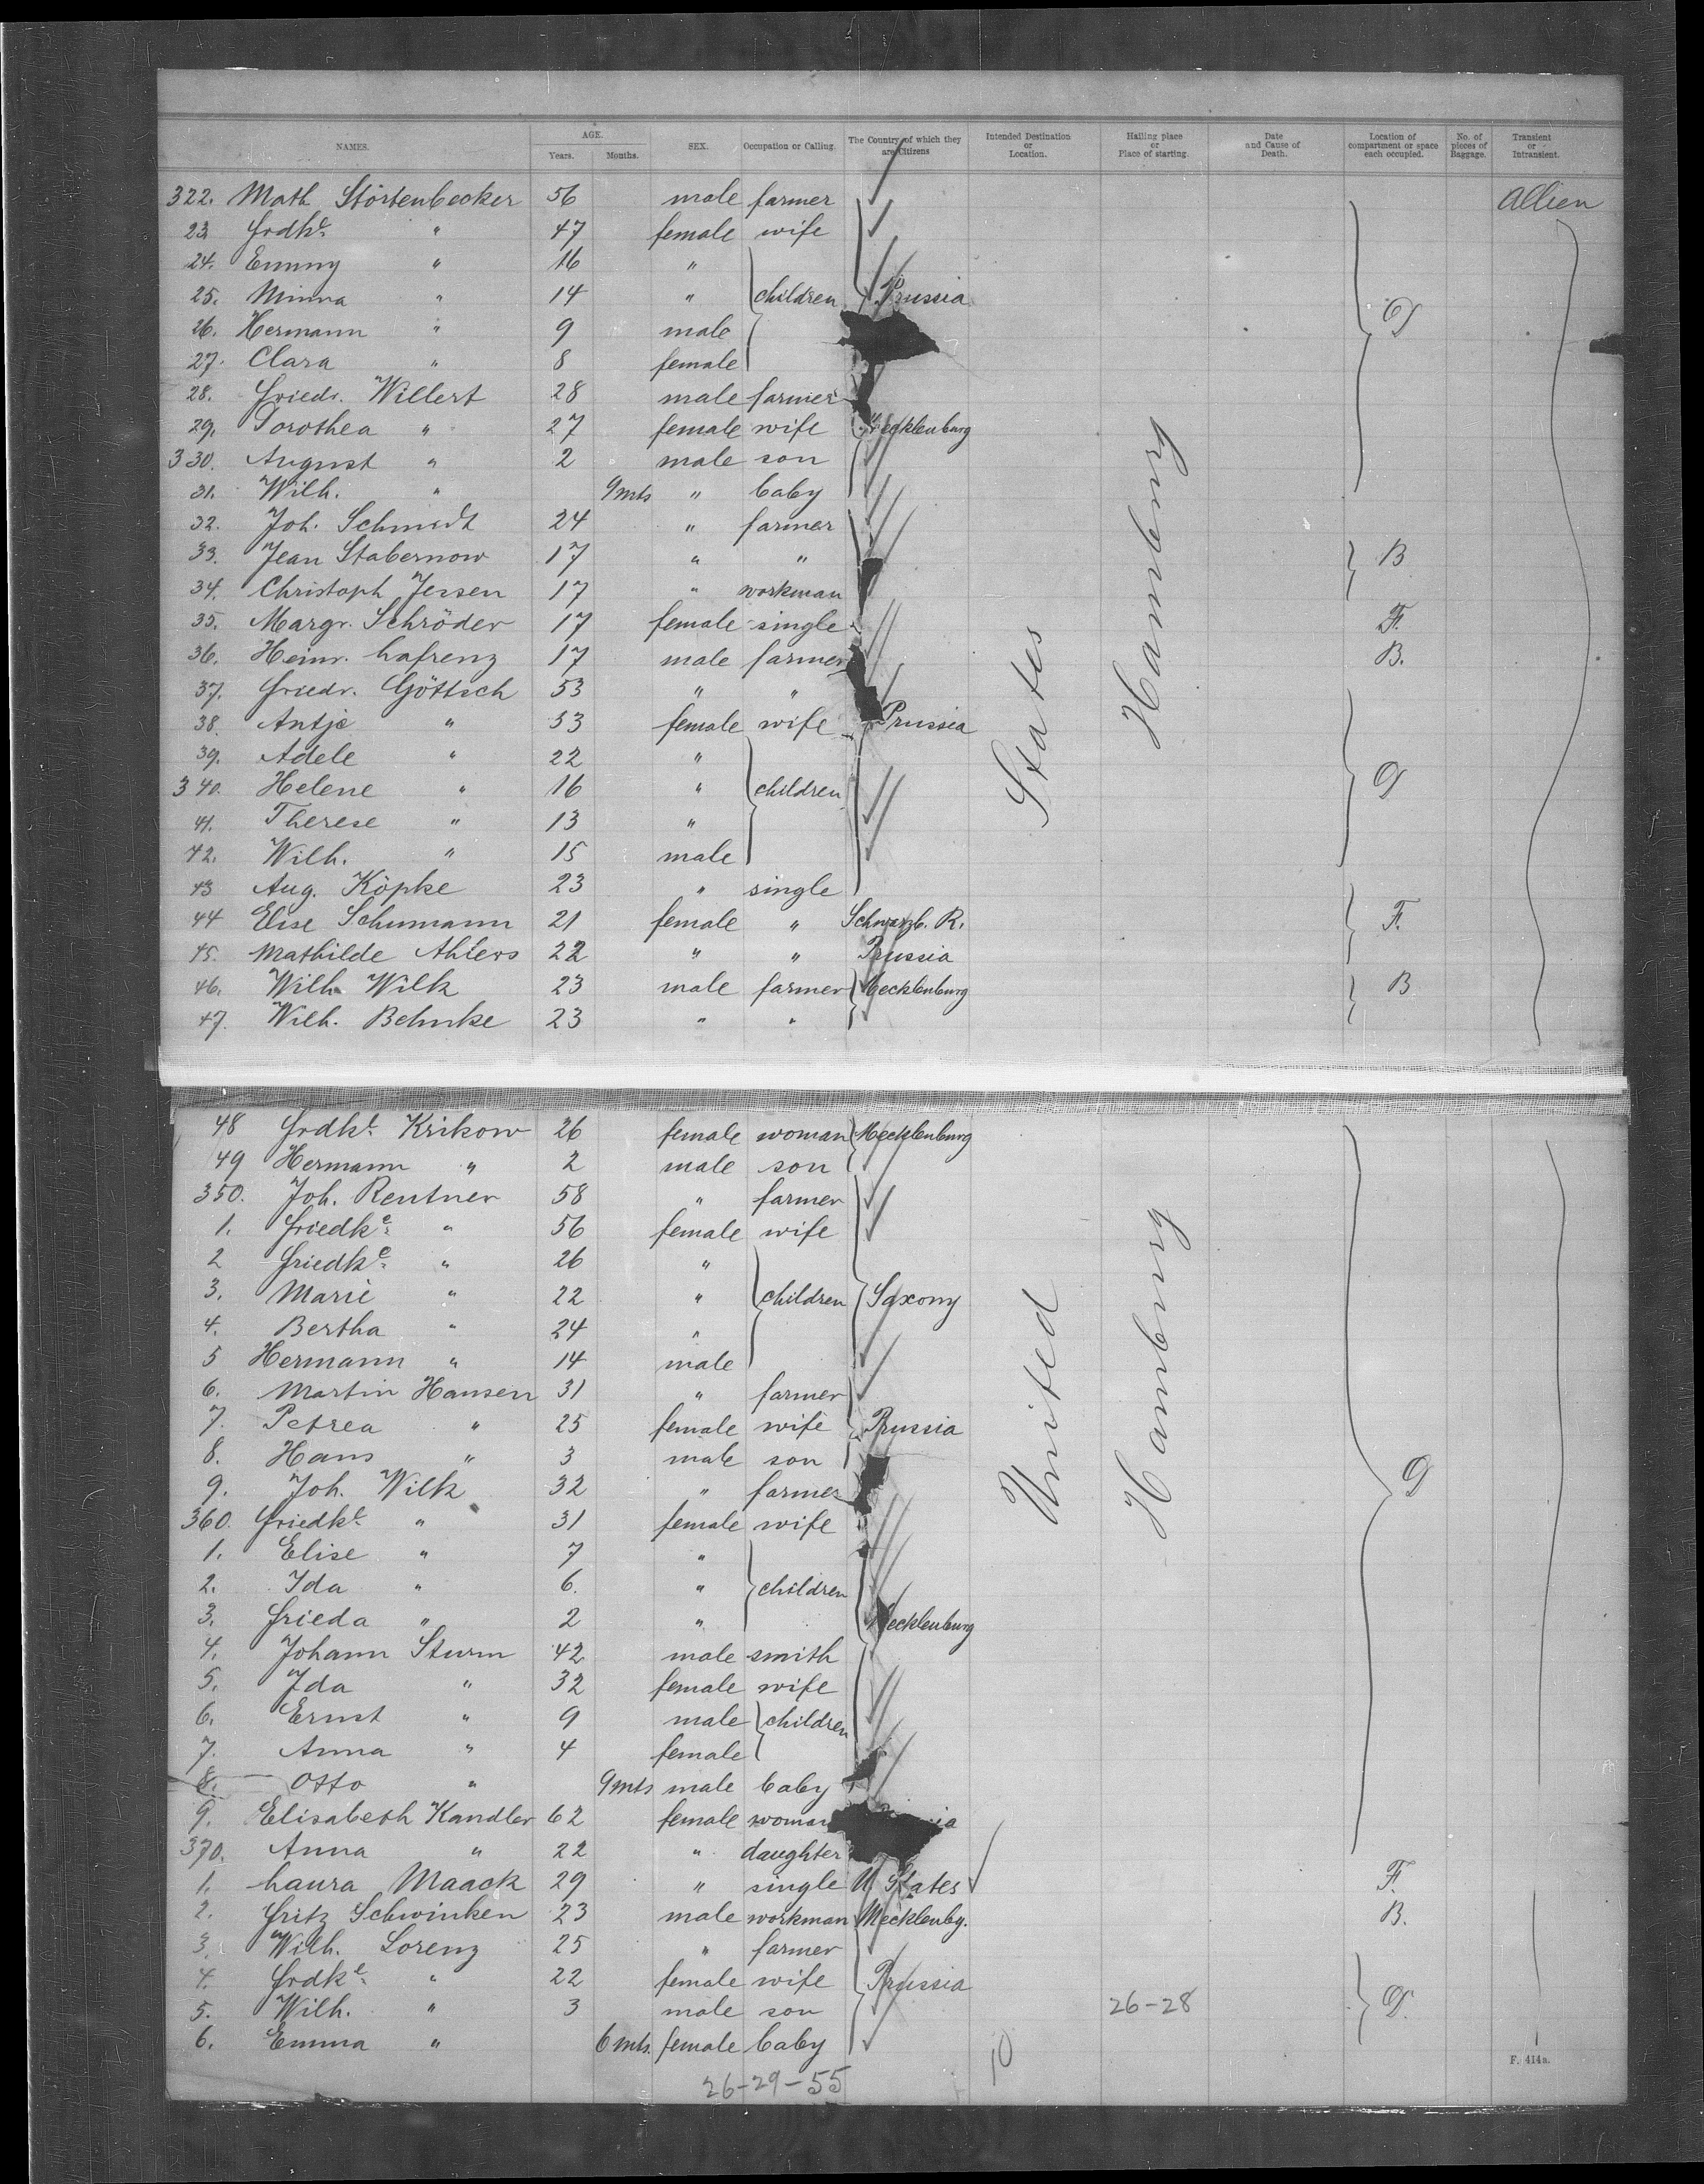 NAMES. AGE. Years. Months. SEX. Occupation or Calling. The Country of which they are Citizens Intended Destination or Location. Hailing place or Place of starting. Date and Cause of Death. Location of compartment or space each occupied. No. of pieces of Baggage. Transient or Intransient.
322. Math Störtenbecker 56 male farmer
23 Frdke. " 47 female wife
24. Emmy " 16 "
25. Minna " 14 " children Prussia
26. Hermann " 9 male
27. Clara " 8 female
28. Friedr. Willert 28 male farmer
29. Dorothea " 27 female wife Mecklenburg
330. August " 2 male son
31. Wilh. " 9 mts " baby
32. Joh. Schmidt 24 " farmer
33. Jean Stabernow 17 " " B
34. Christoph Jessen 17 " workman
35. Margr. Schröder 17 female single F.
36. Heinr. Lafrenz 17 male farmer B.
37. Friedr. Göttsch 53 " "
38. Antje " 53 female wife Prussia
39. Adele " 22 "
340. Helene " 16 " children
41. Therese " 13 "
42. Wilh. " 15 male
43 Aug. Köpke 23 " single
44 Elise Schumann 21 female " Schwarzb. R. F.
45. Mathilde Ahlers 22 " " Prussia
46. Wilh. Wilk 23 male farmer Mecklenburg B
47. Wilh. Behnke 23 " "
States
Hamburg
48 Frdke. Krikow 26 female woman Mecklenburg
49 Hermann " 2 male son
350. Joh. Rentner 58 " farmer
1. Friedke. " 56 female wife
2 Friedke. " 26 "
3. Marie " 22 " children Saxony
4. Bertha " 24 "
5 Hermann " 14 male
6. Martin Hansen 31 " farmer
7. Petrea " 25 female wife Prussia
8. Hans " 3 male son
9. Joh. Wilk 32 " farmer
360. Friedke. " 31 female wife
1. Elise " 7 "
2. Ida " 6. " children
3. Frieda " 2 " Mecklenburg
4. Johann Sturm 42 male smith
5. Ida " 32 female wife
6. Ernst " 9 male children
7. Anna " 4 female
8. Otto " 9 mts male baby
9. Elisabeth Kandler 62 female woman
370. Anna " 22 " daughter
1. Laura Maack 29 " single U. States F.
2. Fritz Schwinken 23 male workman Mecklenbg. B.
3. Wilh. Lorenz 25 " farmer
4. Frdke. " 22 female wife Prussia
5. Wilh. " 3 male son 26-28
6. Emma " 6 mts. female baby
United
Hamburg
26-29-55
10
F. 414a.